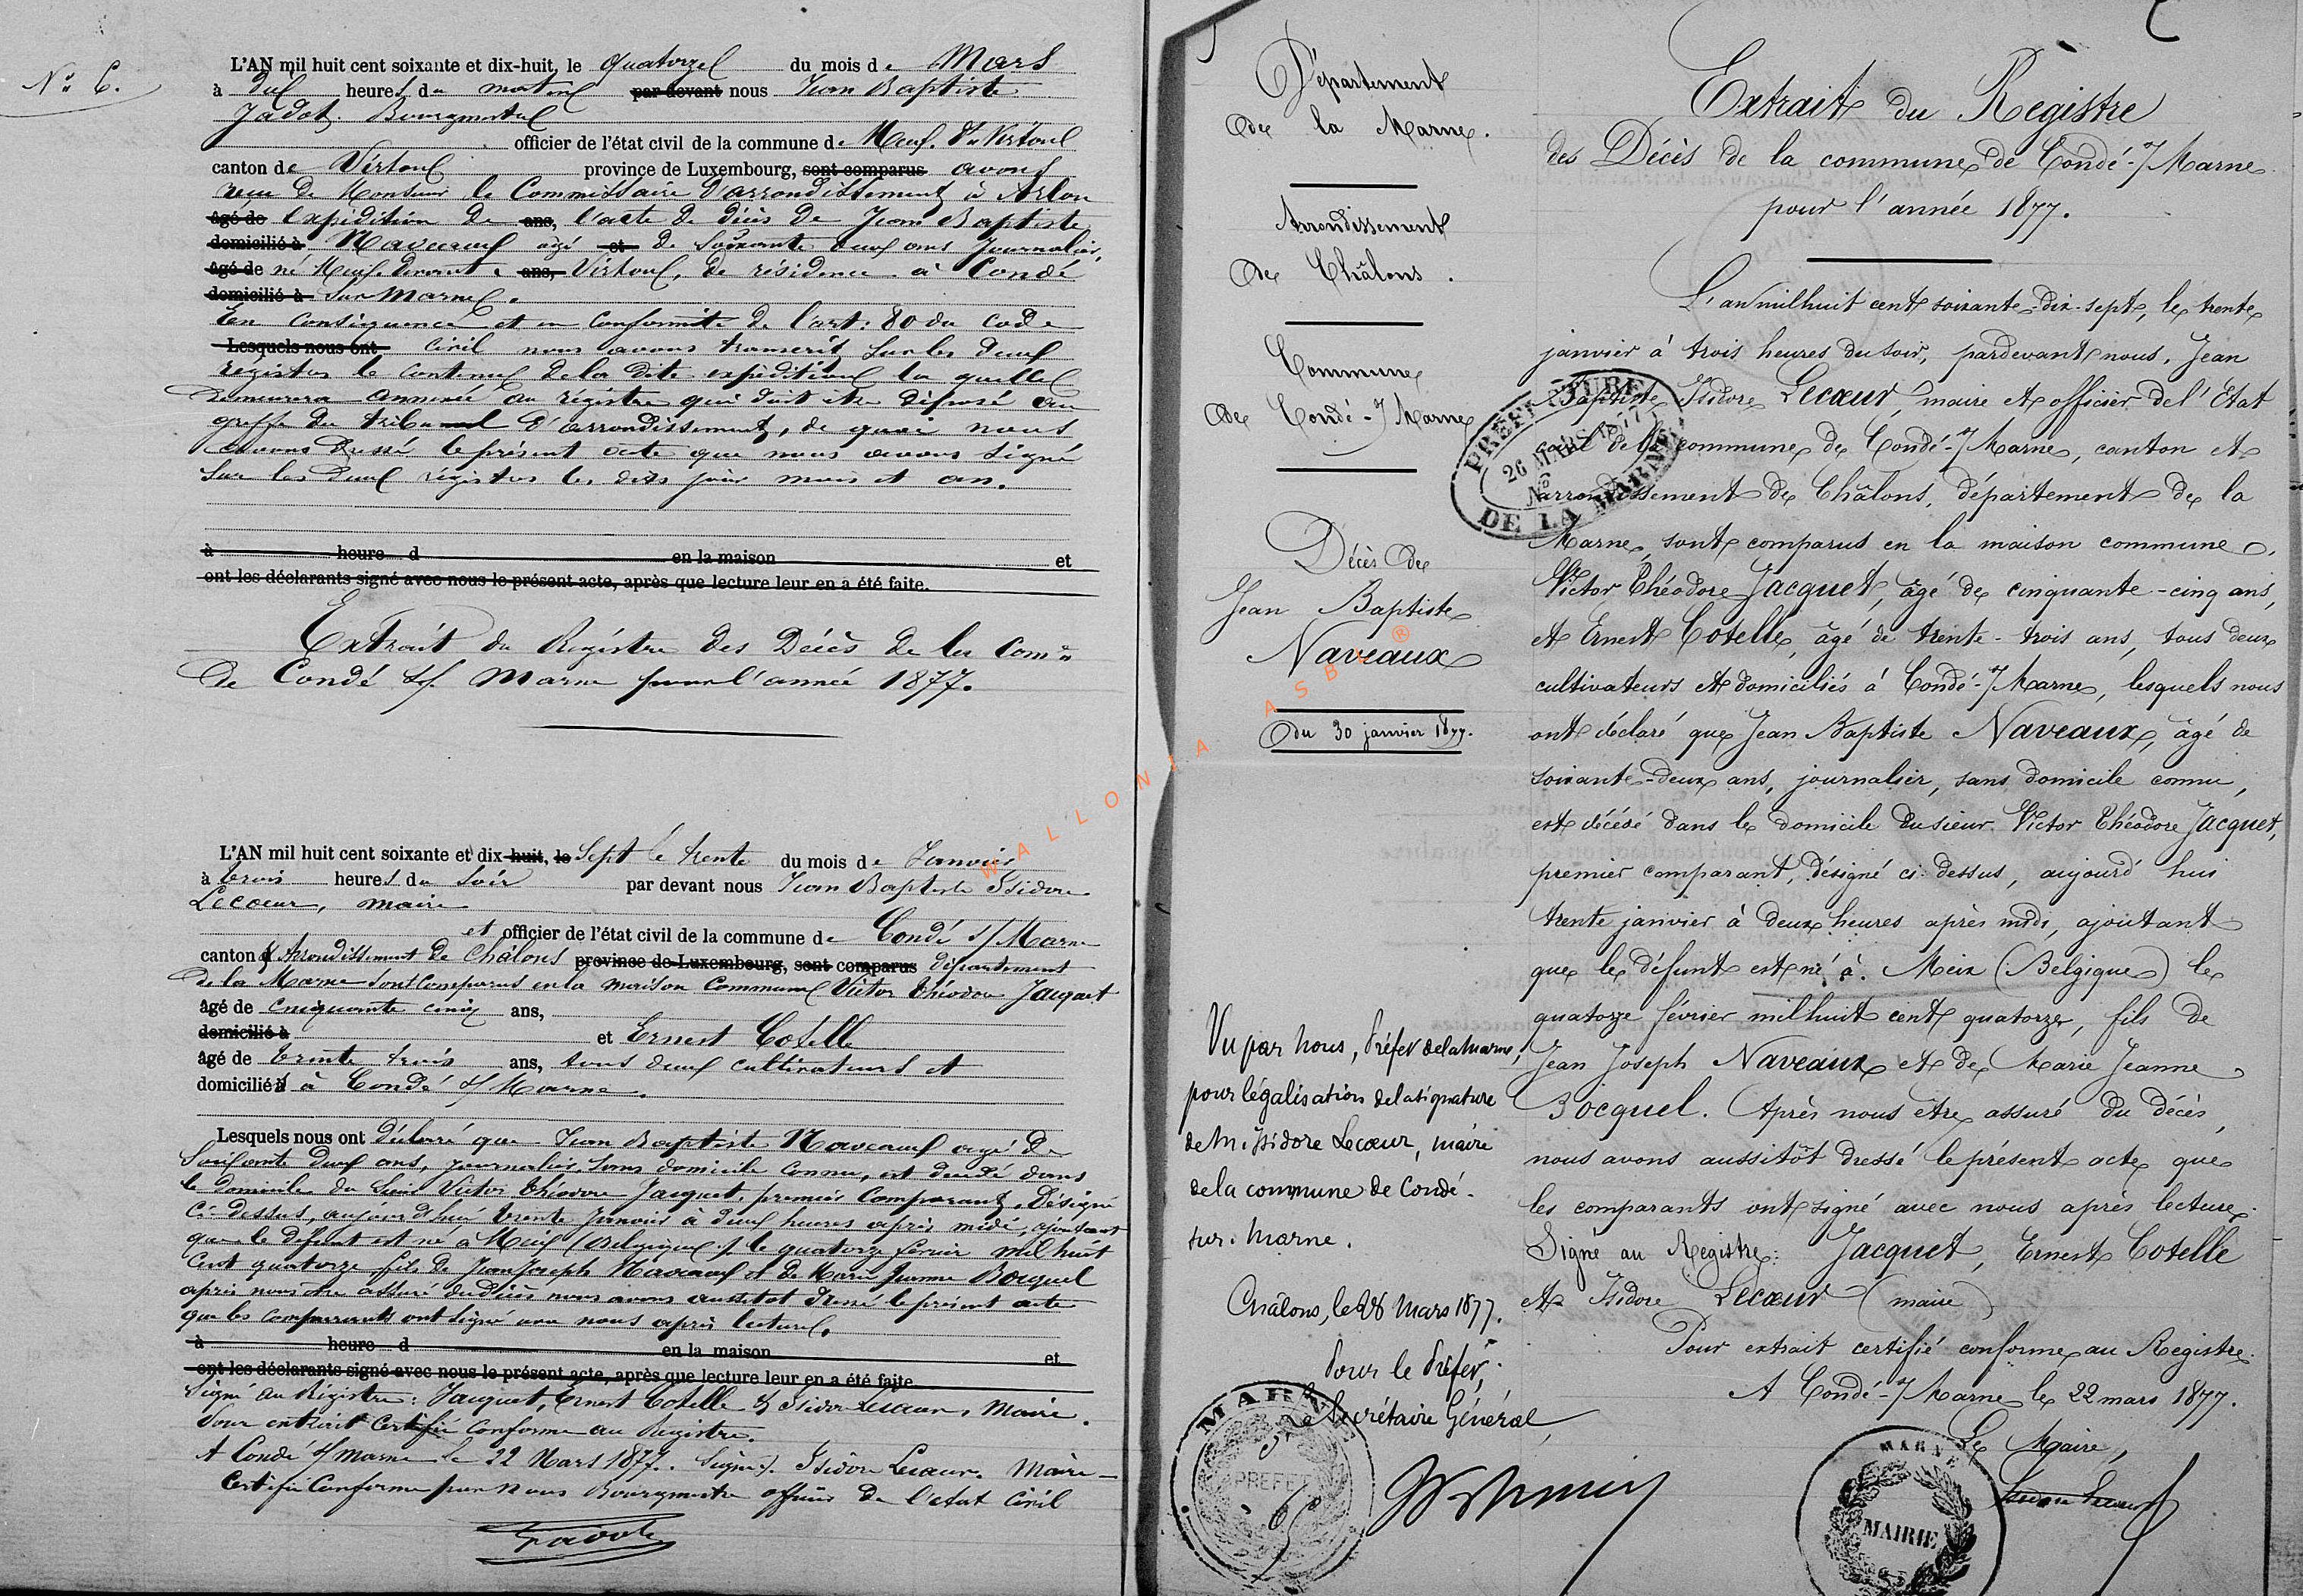 N° 6.
L'AN mil huit cent soixante et dix-huit, le quatorze du mois de Mars
à dix heures du matin par devant nous Jean Baptiste
Jadot, Bourgmestre
officier de l'état civil de la commune de Meix dt Virton
canton de Virton province de Luxembourg, sont comparus avons
reçu de Monsieur le Commissaire d'arrondissement à Arlon
âgé de l'expédition de ans, l'acte de décès de Jean Baptiste
domicilié à Naveaux âgé et de soixante deux ans journalier,
âgé de né Meix devant ans, Virton, de résidence à Condé
domicilié à sur Marne.
En conséquence et en conformité de l'art: 80 du code
Lesquels nous ont civil nous avons transcrit sur les deux
registres le contenu de la dite expédition la quelle
demeurera annexée au régistre qui doit être déposé au
greffe du tribunal d'arrondissement, de quoi nous
avons dressé le présent acte que nous avons signé
sur les deux régistres les dits jour mois et an.
à heure d en la maison et
ont les déclarants signé avec nous le présent acte, après que lecture leur en a été faite.
Extrait du Régistre des Décès de la Comne
de Condé s/ Marne pour l'année 1877.
L'AN mil huit cent soixante et dix-huit, le sept le trente du mois de Janvier
à trois heures du soir par devant nous Jean Baptiste Isidore
Lecoeur, maire
et officier de l'état civil de la commune de Condé s/ Marne
canton & Arrondissement de Châlons province de Luxembourg, sont comparus département
de la Marne sont comparus en la maison Commune Victor théodore Jacquet
âgé de cinquante cinq ans,
domicilié à et Ernest Cotelle
âgé de trente trois ans, tous deux cultivateurs et
domiciliés à Condé s/ Marne.
Lesquels nous ont déclaré que Jean Baptiste Naveaux agé de
soixante deux ans, journalier sans domicile connu, est décédé dans
le domicile du sieur Victor théodore Jacquet, premier Comparant, désigné
ci-dessus, aujourd'hui trente Janvier à deux heures après midi, ajoutant
que le défunt est né à Meix (Belgique) le quatorze février mil huit
cent quatorze fils de Jean Joseph Naveaux et de Marie Jeanne Bocquel
après nous être assuré du décès nous avons aussitot dressé le présent acte
que les comparants ont signé avec nous après lecture.
à heure d en la maison et
ont les déclarants signé avec nous le présent acte, après que lecture leur en a été faite.
Signé au Régistre: Jacquet, Ernest Cotelle & Isidore Lecoeur, Maire.
Pour extrait certifié conforme au Registre.
A Condé s/ Marne le 22 Mars 1877. Signé). Isidore Lecoeur. Maire
Certifié Conforme par Nous Bourgmestre officier de l'état civil
Jadot
WALLONIA ASBL ®
Département
de la Marne.
Arrondissement
de Châlons.
Commune
de Condé-s/Marne
Décès de
Jean Baptiste
Naveaux
du 30 janvier 1877.
Vu par nous, Préfet de la Marne,
pour légalisation de la signature
de M. Isidore Lecœur, maire
de la commune de Condé-
sur-Marne.
Châlons, le 28 Mars 1877.
Pour le Préfet,
Le Secrétaire Général,
MARNE
PREFET
Extrait du Registre
des Décès de la commune de Condé-s/Marne
pour l'année 1877.
L'an mil huit cent soixante-dix-sept, le trente
janvier à trois heures du soir, pardevant nous, Jean
Baptiste Isidore Lecœur, maire et officier de l'Etat
civil de la commune de Condé-s/Marne, canton et
arrondissement de Châlons, département de la
Marne, sont comparus en la maison commune,
Victor Théodore Jacquet, âgé de cinquante-cinq ans,
et Ernest Cotelle, âgé de trente-trois ans, tous deux
cultivateurs et domiciliés à Condé-s/Marne, lesquels nous
ont déclaré que Jean Baptiste Naveaux, âgé de
soixante-deux ans, journalier, sans domicile connu,
est décédé dans le domicile du sieur Victor Théodore Jacquet,
premier comparant, désigné ci-dessus, aujourd'hui
trente janvier à deux heures après midi, ajoutant
que le défunt est né à Meix (Belgique) le
quatorze février mil huit cent quatorze, fils de
Jean Joseph Naveaux et de Marie Jeanne
Bocquel. Après nous être assuré du décès,
nous avons aussitôt dressé le présent acte que
les comparants ont signé avec nous après lecture.
Signé au Registre: Jacquet, Ernest Cotelle
et Isidore Lecœur (maire)
Pour extrait certifié conforme au Registre.
A Condé-s/Marne le 22 mars 1877.
Le Maire,
Isidore Lecœur
PREFECTURE
26 MARS 1877
N°
DE LA MARNE
MARNE
MAIRIE